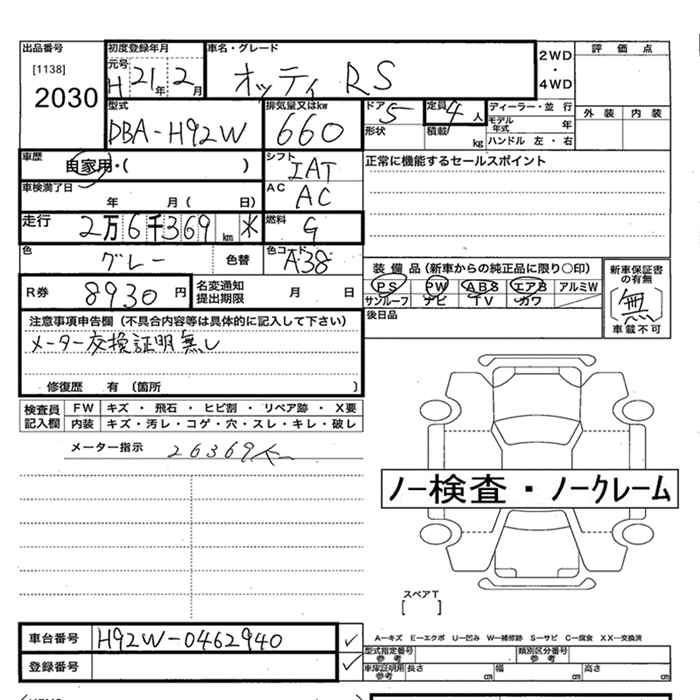 出品番号 初度登録年月 車名・グレード 2WD・4WD 評価点
[1138] 元号 H 21年 2月 オッティ RS
2030 外装 内装
型式 排気量又はkw ドア 5 定員 4人 ディーラー・並行
DBA-H92W 660 形状 積載 kg モデル年式 年
ハンドル 左・右
車歴 自家用・( ) シフト IAT 正常に機能するセールスポイント
車検満了日 年 月( 日) AC AC
走行 2万6千369km 燃料 G
色 グレー 色替 色コード A38 装備品(新車からの純正品に限り○印) 新車保証書の有無
R券 8930円 名変通知提出期限 月 日 PS PW ABS エアB アルミW
サンルーフ ナビ TV カワ 〔無〕
後日品 車載不可
注意事項申告欄(不具合内容等は具体的に記入して下さい)
メーター交換証明無し
修復歴 有 〔箇所 〕
検査員記入欄 FW キズ ・ 飛石 ・ ヒビ割 ・ リペア跡 ・ X要
内装 キズ・汚レ・コゲ・穴・スレ・キレ・破レ
メーター指示 26369
ノー検査・ノークレーム
スペアT
[ ]
車台番号 H92W-0462940 A−キズ E−エクボ U−凹み W−補修跡 S−サビ C−腐食 XX−交換済
型式指定番号 参考 類別区分番号 参考
登録番号 車庫証明用参考 長さ cm 幅 cm 高さ cm